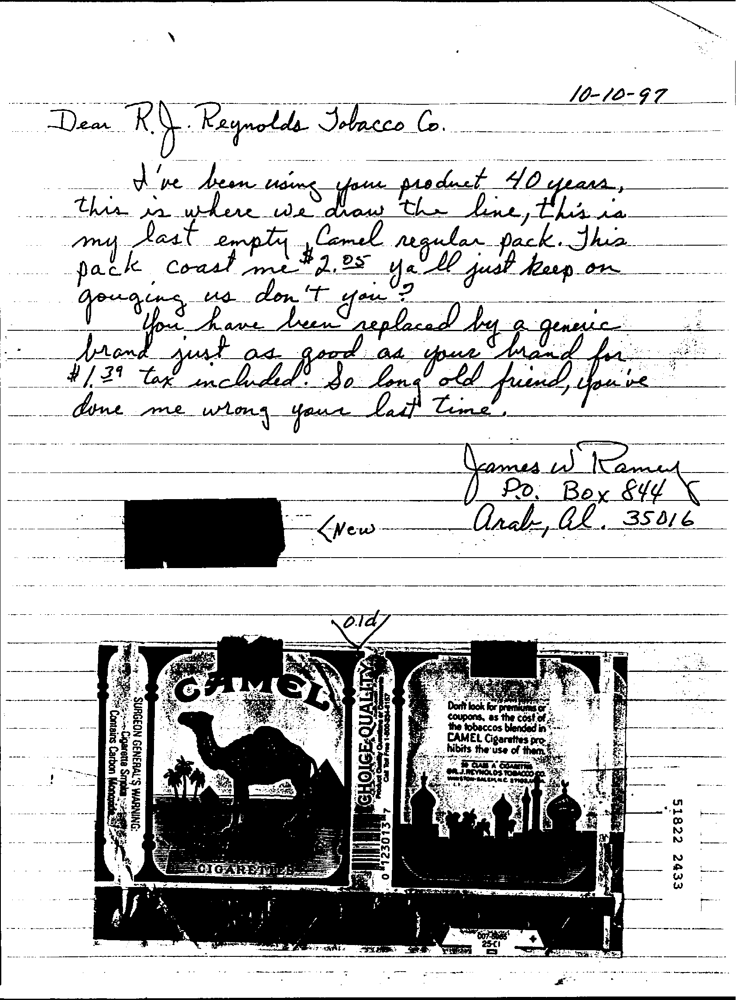 10-10-97
Dear R.J. Reynolds Tobacco Co.
I've been using your product 40 years,
this is where we draw the line, this is
my last empty, Camel regular pack. This
pack coast me $2.05 ya ll just keep on
gouging us don't you?
You have been replaced by a generic
brand just as good as your brand for
$1.39 tax included. So long old friend, you've
done me wrong your last time.
James W Ramey
P.O. Box 844
Arab, Al. 35016
<New
old
CAMEL
CIGARETTES
SURGEON GENERAL'S WARNING:
Cigarette Smoke
Contains Carbon Monoxide.
CHOICE QUALITY
0 123013 7
Don't look for premiums or
coupons, as the cost of
the tobaccos blended in
CAMEL Cigarettes pro-
hibits the use of them.
20 CLASS A CIGARETTES
R.J. REYNOLDS TOBACCO CO.
51822 2433
25-C1